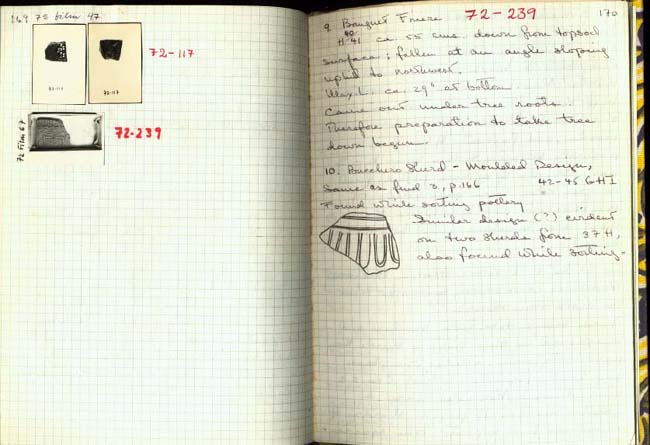 169 75 film 47
72-117
72-117
72-117
72 Film 67
72-239
9. Banquet Frieze 72-239 170
40
H-41 ca. 55 cms. down from topsoil
surface; fallen at an angle sloping
up to northwest.
Max. L. ca. 29" at bottom
Came out under tree roots.
Therefore preparation to take tree
down begun.
10. Bucchero Sherd - Moulded Design,
same as find 3, p.166 42-45 GHI
Found while sorting pottery
Similar design (?) evident
on two sherds from 37H,
also found while sorting.